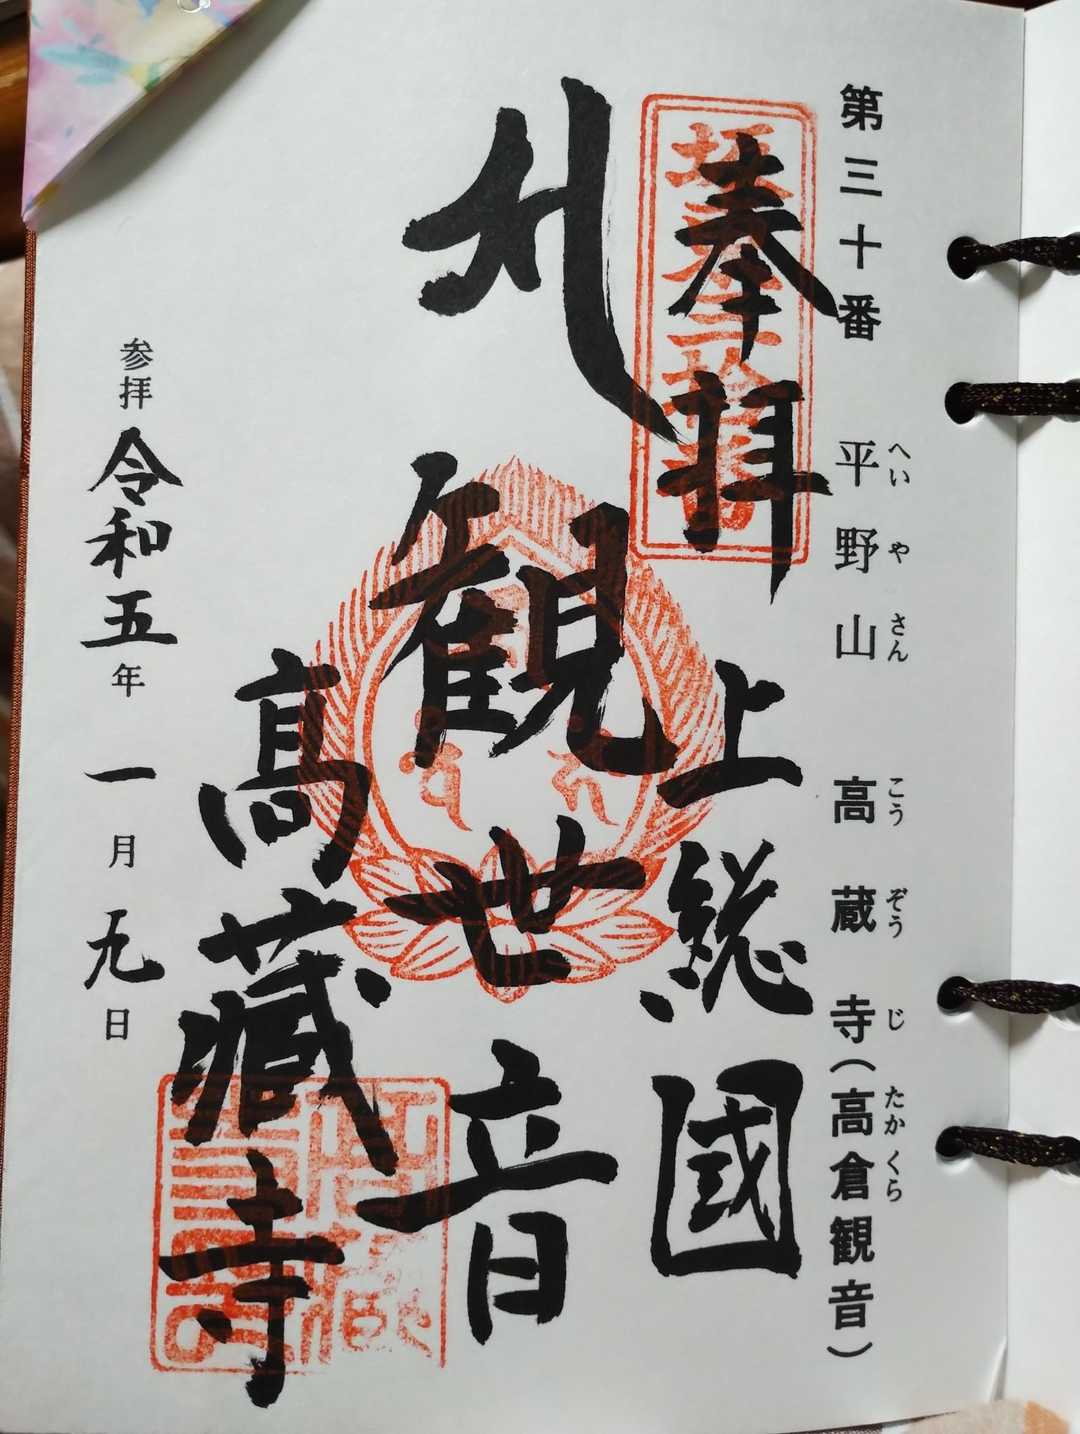 第三十番 平野山 高蔵寺(高倉観音)
へいやさん こうぞうじ たかくら
奉拝
上総國
観世音
高藏寺
参拝 令和五年 一月 九日